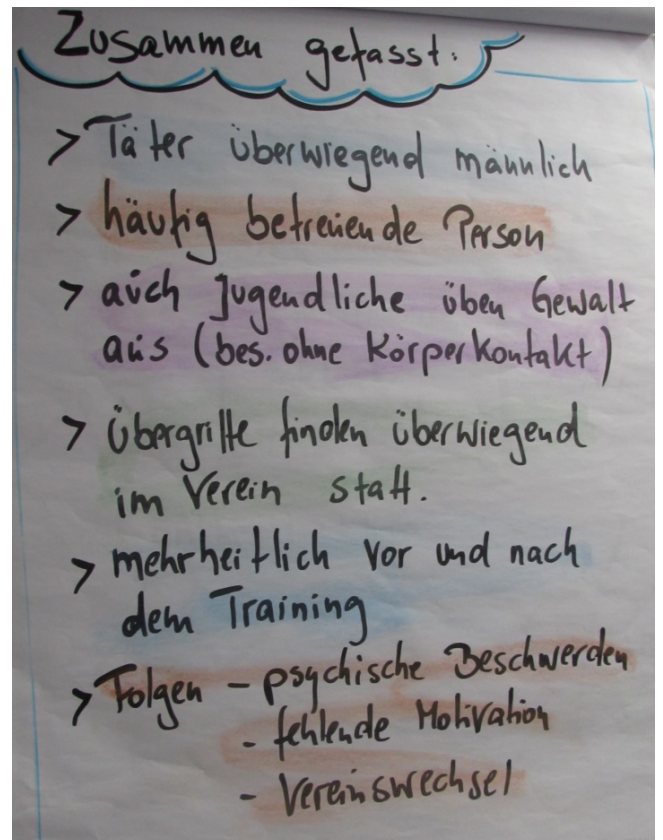 Zusammen gefasst:
> Täter überwiegend männlich
> häufig betreuende Person
> auch Jugendliche üben Gewalt
aus (bes. ohne Körperkontakt)
> Übergriffe finden überwiegend
im Verein statt.
> mehrheitlich vor und nach
dem Training
> Folgen - psychische Beschwerden
- fehlende Motivation
- Vereinswechsel